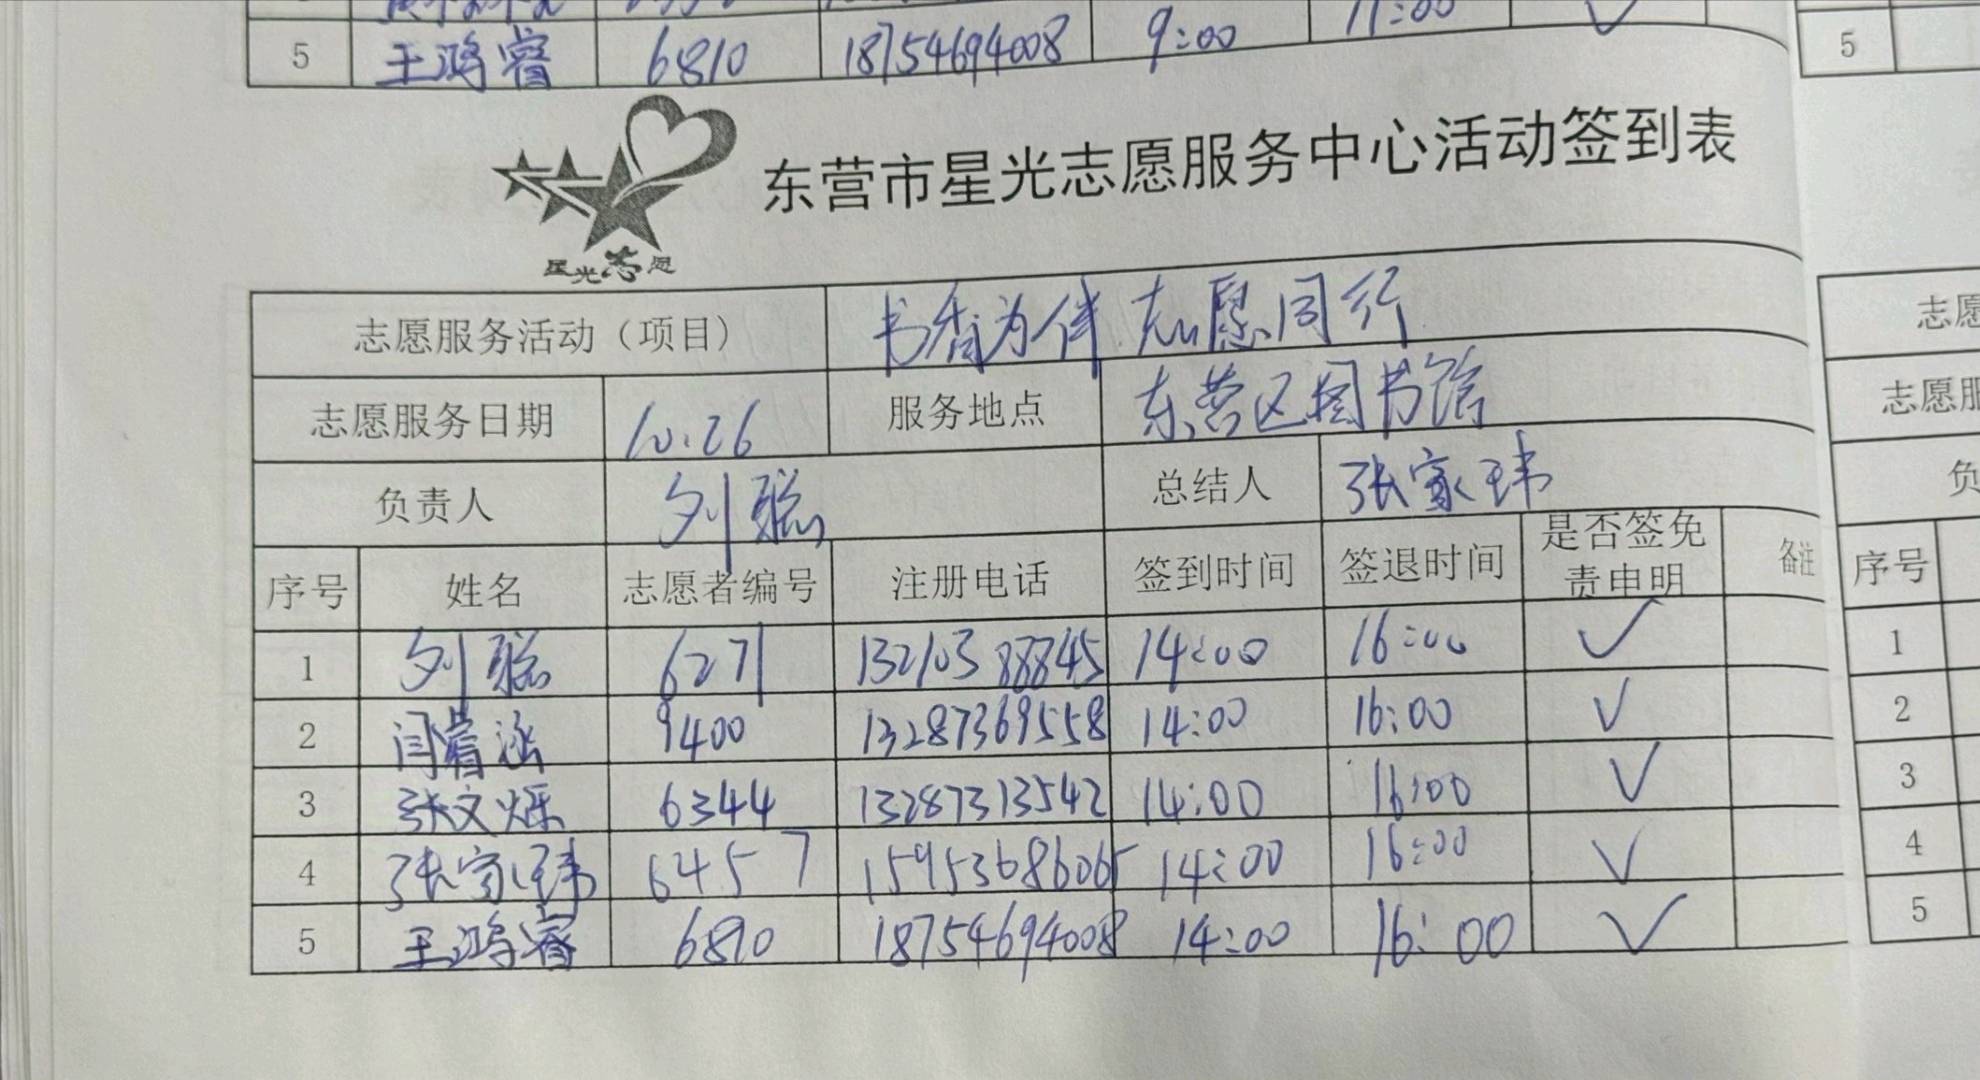 5 王鸿睿 6810 18754694008 9:00 11:00 ✓
5
东营市星光志愿服务中心活动签到表
星光志愿
志愿服务活动（项目） 书香为伴 志愿同行
志愿服务日期 10.26 服务地点 东营区图书馆
负责人 刘聪 总结人 张家玮
序号 姓名 志愿者编号 注册电话 签到时间 签退时间 是否签免责申明 备注
1 刘聪 6271 13210388845 14:00 16:00 ✓
2 闫睿涵 9400 13287369558 14:00 16:00 ✓
3 张文烁 6344 13287313542 14:00 16:00 ✓
4 张家玮 6457 15953686065 14:00 16:00 ✓
5 王鸿睿 6810 18754694008 14:00 16:00 ✓
志愿
志愿服
负
序号
1
2
3
4
5